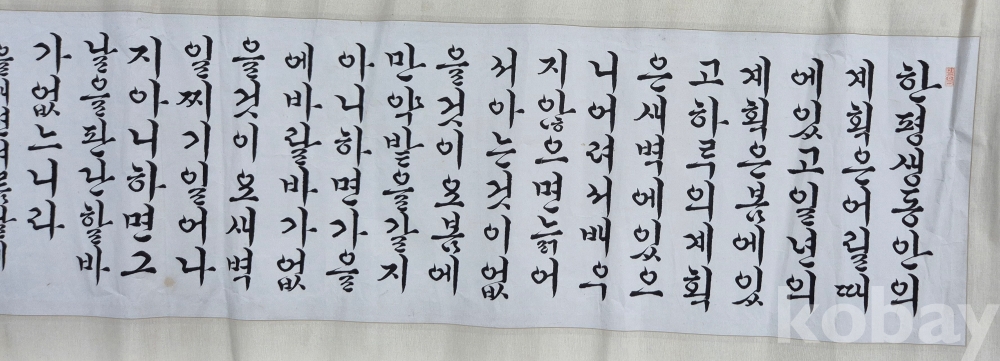 한평생동안의
계획은어릴때
에있고일년의
계획은봄에있
고하루의계획
은새벽에있으
니어려서배우
지않으면늙어
서아는것이없
을것이오봄에
만약밭을갈지
아니하면가을
에바랄바가없
을것이오새벽
일찌기일어나
지아니하면그
날을판단할바
가없느니라
kobay